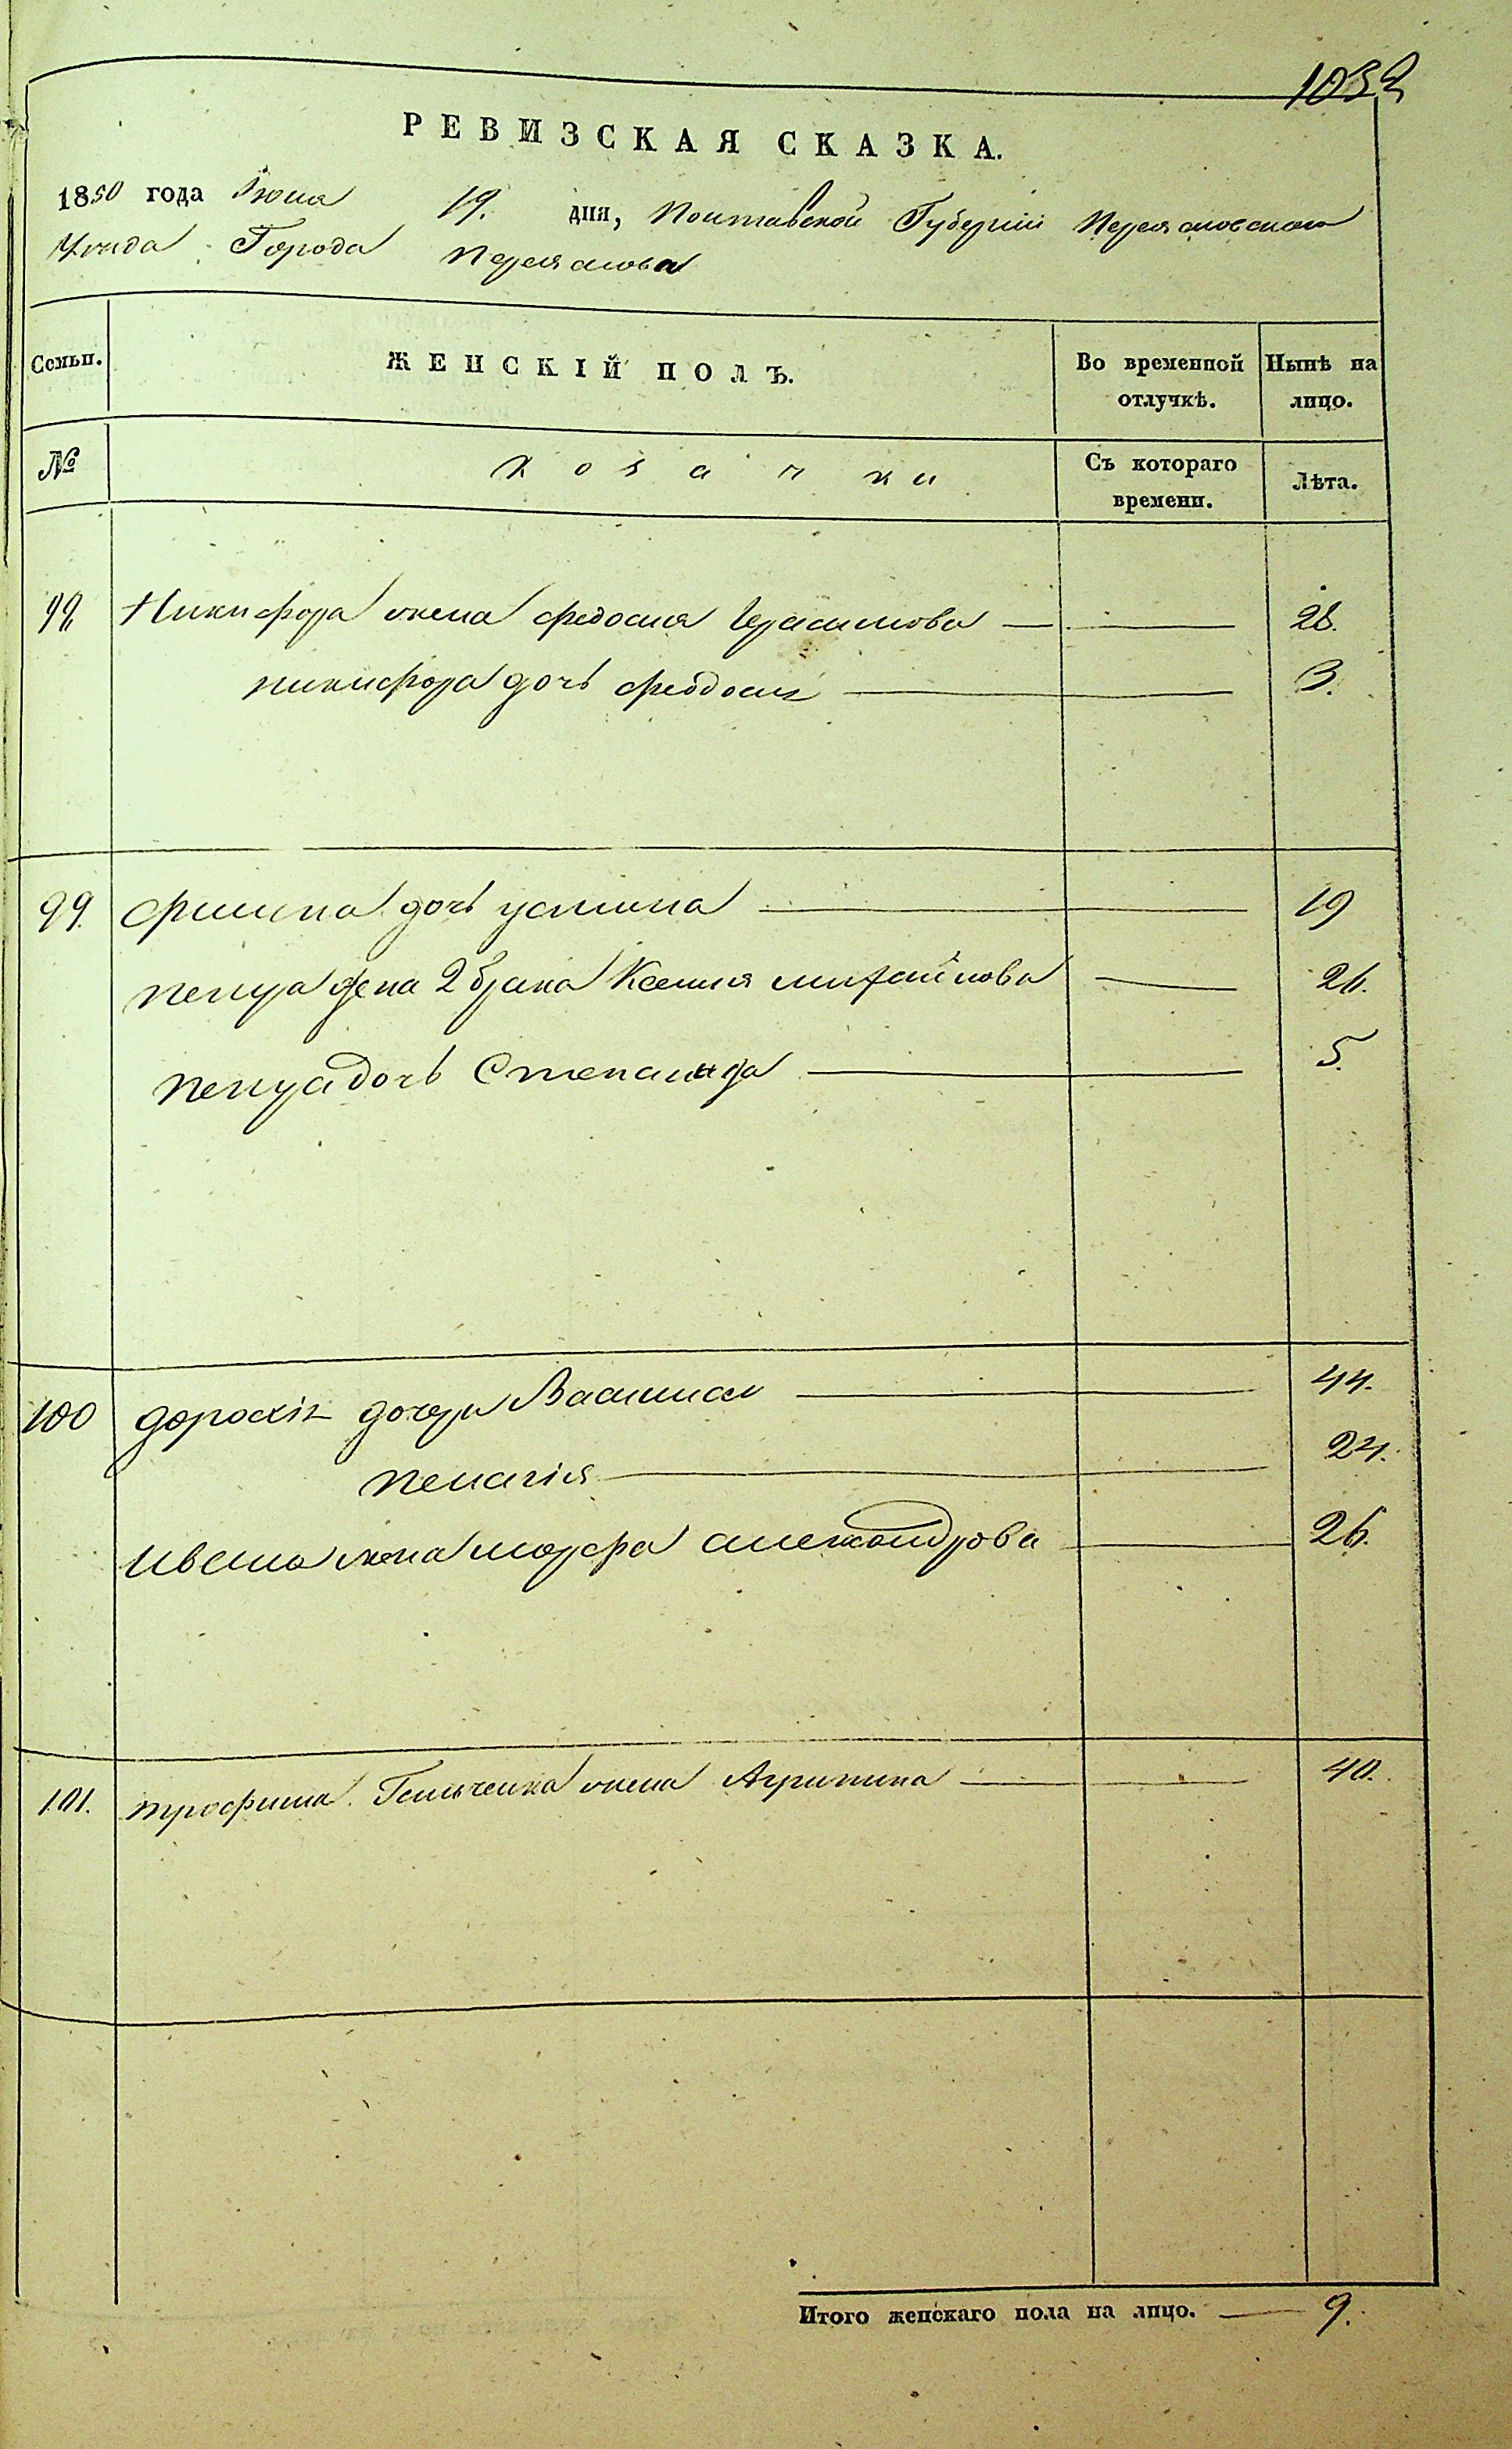 1032
РЕВИЗСКАЯ СКАЗКА.
1850 года Июня 19. дня, Полтавской Губерніи Переясловскаго
Уезда Города Переяслова
Семьи. ЖЕНСКІЙ ПОЛЪ. Во временной отлучкѣ. Нынѣ на лицо.
№ Козачки Съ котораго времени. Лѣта.
Никифора жена Федосия Герасимова — 28.
никифора дочь феодосия — 3.
99. дочь устина — 19
петра жена 2 брака Ксения михайлова — 26.
петра дочь Степанида — 5.
100 дочери Василиса — 44.
пелагія — 24.
Ивана жена марфа александрова — 26.
101. трофима жена Агрипина — 40.
Итого женскаго пола на лицо. — 9.